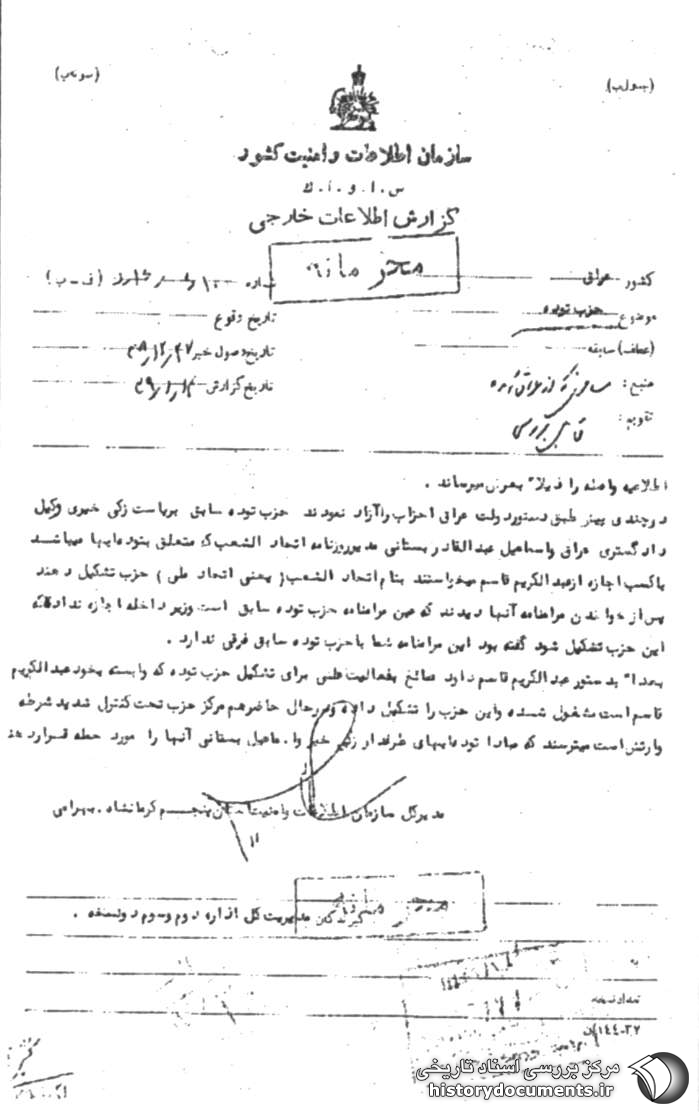 (سولب)
(سولب)
سازمان اطلاعات و امنیت کشور
س . ا . و . ا . ك
گزارش اطلاعات خارجی
محرمانه
کشور عراق
شماره
(ف - ب)
موضوع حزب توده
تاریخ وقوع
(عطف) سابقه
تاریخ وصول خبر
منبع :
تاریخ گزارش
تقویم :
قابل بررسی
اطلاعیه واصله را ذیلا" بعرض میرساند .
در چندی پیش طبق دستور دولت عراق احزاب را آزاد نمودند حزب توده سابق بریاست زکی خیری وکیل
دادگستری عراق واسماعیل عبدالقادر بستانی مدیر روزنامه اتحاد الشعب که متعلق بتوده ایها میباشد
باکسب اجازه از عبدالکریم قاسم میخواستند بنام اتحاد الشعب ( یعنی اتحاد ملی ) حزب تشکیل دهند
پس از خواندن مرامنامه آنها دیدند که عین مرامنامه حزب توده سابق است وزیر داخله اجازه نداد که
این حزب تشکیل شود گفته بود این مرامنامه شما با حزب توده سابق فرقی ندارد .
بعدا" بدستور عبدالکریم قاسم داود صائغ بفعالیت علنی برای تشکیل حزب توده که وابسته بخود عبدالکریم
قاسم است مشغول شده واین حزب را تشکیل داده ودرحال حاضرهم مرکز حزب تحت کنترل شدید شرطه
وارتش است میترسند که مبادا توده ایهای طرفدار زکی خیری واسماعیل بستانی آنها را مورد حمله قرار دهند
مدیرکل سازمان اطلاعات وامنیت استان پنجم کرمانشاه . بهرامی
محرمانه
گیرندگان مدیریت کل اداره دوم وسوم دونسخه .
به
تعداد نسخه
۱۴۴-۳۲
مرکز بررسی اسناد تاریخی
historydocuments.ir